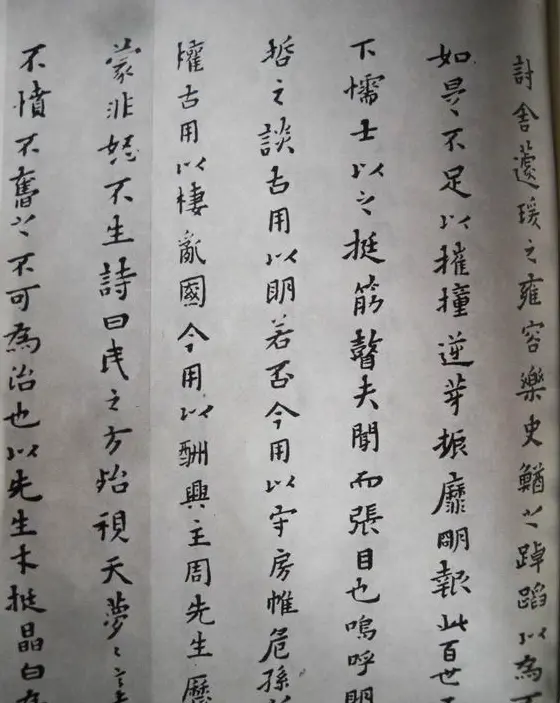 討舍蘧瑗之雍容樂史鰌之踔蹈以為不
如是不足以摧撞逆芽振靡明報此百世
下懦士以之挺筋瞽夫聞而張目也嗚呼明
哲之談古用以明若否今用以守房帷危孫
權古用以棲亂國今用以酬興主周先生歷
蒙非姪不生詩曰民之方殆視天夢夢
不憤不奮之不可為治也以先生木挺晶白為